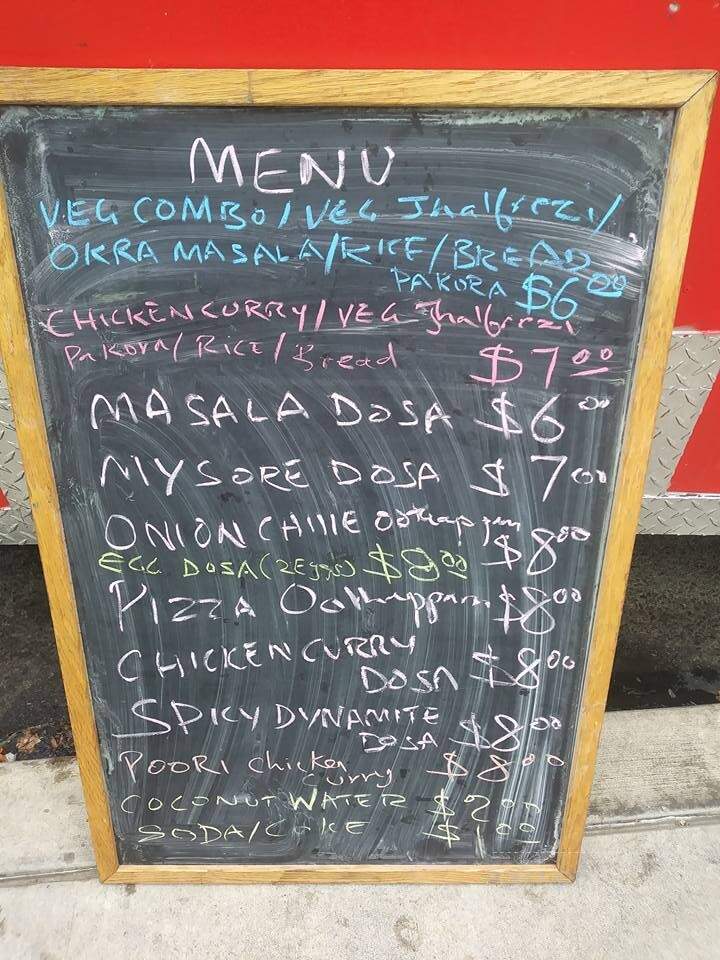 MENU
VEG COMBO/VEG Jhalfrezi/
OKRA MASALA/RICE/BREAD
PAKORA $6.00
CHICKEN CURRY/VEG Jhalfrezi
Pakora/Rice/Bread $7.00
MASALA DOSA $6.00
MYSORE DOSA $7.00
ONION CHILLE Oothappam $8.00
EGG DOSA (2Eggs) $8.00
PIZZA Oothappam $8.00
CHICKEN CURRY
DOSA $8.00
SPICY DYNAMITE
DOSA $8.00
POORI Chicken
Curry $8.00
COCONUT WATER $2.00
SODA/COKE $1.00